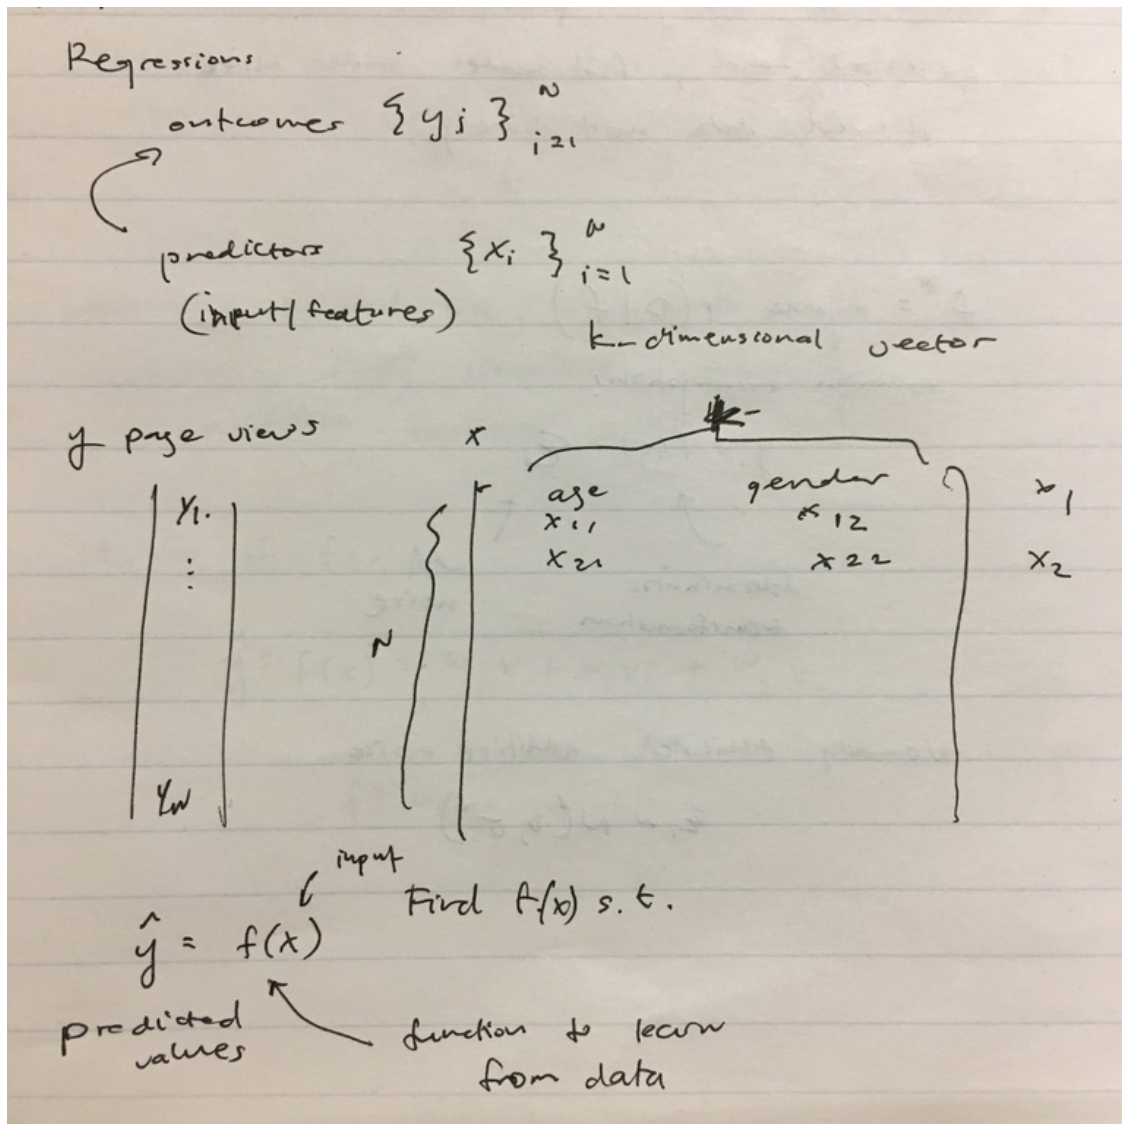 Regressions
outcomes {yi}ᴺ i=1
predictors {xi}ᴺ i=1
(input/features)
k-dimensional vector
y page views x k
y1. age gender x1
x11 x12
⋮ x21 x22 x2
N
yN
input
Find f(x) s.t.
ŷ = f(x)
predicted values
function to learn
from data